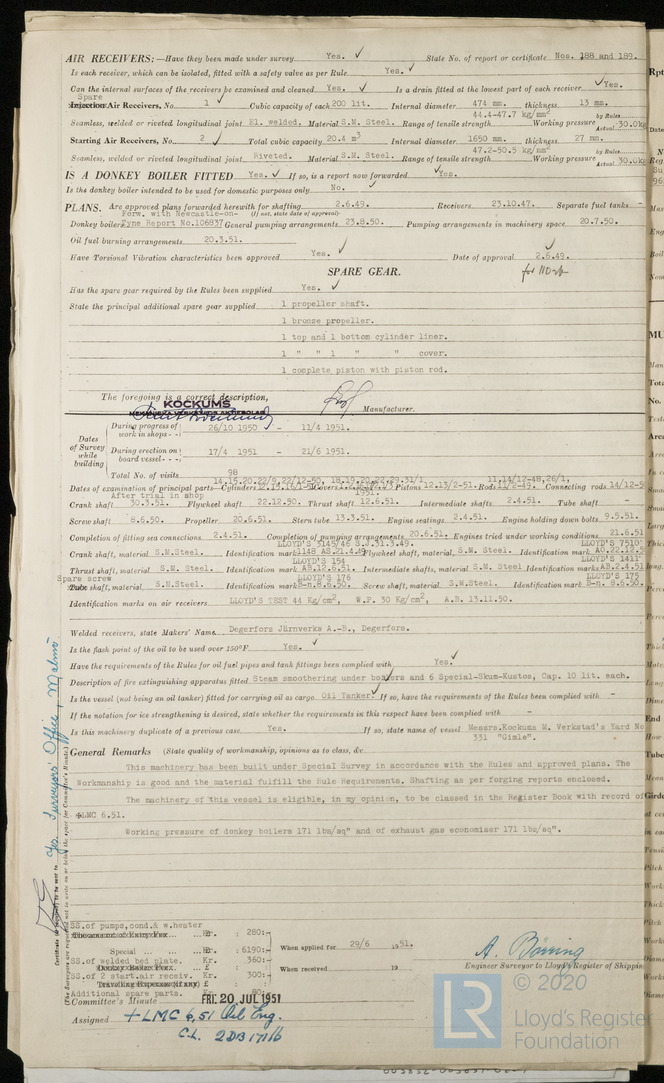 AIR RECEIVERS:—Have they been made under survey Yes. ✓ State No. of report or certificate Nos. 188 and 189.
Is each receiver, which can be isolated, fitted with a safety valve as per Rule Yes. ✓
Can the internal surfaces of the receivers be examined and cleaned Yes. ✓ Is a drain fitted at the lowest part of each receiver ✓Yes.
Spare
Injection Air Receivers, No. 1 ✓ Cubic capacity of each 200 lit. Internal diameter 474 mm. thickness 13 mm.
44.4-47.7 kg/mm² by Rules
Seamless, welded or riveted longitudinal joint El. welded. Material S.M. Steel. Range of tensile strength Working pressure Actual 30.0kg
Starting Air Receivers, No. 2 ✓ Total cubic capacity 20.4 m³ Internal diameter 1650 mm. thickness 27 mm.
47.2-50.5 kg/mm² by Rules
Seamless, welded or riveted longitudinal joint Riveted. Material S.M. Steel. Range of tensile strength Working pressure Actual 30.0kg
IS A DONKEY BOILER FITTED Yes. ✓ If so, is a report now forwarded ✓Yes.
Is the donkey boiler intended to be used for domestic purposes only No. ✓
PLANS. Are approved plans forwarded herewith for shafting 2.6.49. Receivers 23.10.47. Separate fuel tanks -
Form. with Newcastle-on- (If not, state date of approval)
Donkey boilers Tyne Report No.106837 General pumping arrangements 23.8.50. Pumping arrangements in machinery space 20.7.50.
Oil fuel burning arrangements 20.3.51.
Have Torsional Vibration characteristics been approved Yes. ✓ Date of approval 2.6.49.
SPARE GEAR.
Has the spare gear required by the Rules been supplied Yes. ✓
State the principal additional spare gear supplied 1 propeller shaft.
1 bronze propeller.
1 top and 1 bottom cylinder liner.
1 " " 1 " " cover.
1 complete piston with piston rod.
The foregoing is a correct description,
KOCKUMS
MEKANISKA VERKSTADS AKTIEBOLAG
Manufacturer.
Dates of Survey while building
During progress of work in shops - - 26/10 1950 - 11/4 1951.
During erection on board vessel - - - 17/4 1951 - 21/6 1951.
Total No. of visits 98
Dates of examination of principal parts—Cylinders Covers Pistons 12.13/2-51. Rods Connecting rods 14/12-5
After trial in shop 1951.
Crank shaft 30.3.51. Flywheel shaft 22.12.50. Thrust shaft 12.6.51. Intermediate shafts 2.4.51. Tube shaft -
Screw shaft 8.6.50. Propeller 20.6.51. Stern tube 13.3.51. Engine seatings 2.4.51. Engine holding down bolts 9.5.51.
Completion of fitting sea connections 2.4.51. Completion of pumping arrangements 20.6.51. Engines tried under working conditions 21.6.51
LLOYD'S 3145/46 S.J.31.3.49. LLOYD'S 7510
Crank shaft, material S.M.Steel. Identification mark 1148 AS.21.4.49 Flywheel shaft, material S.M. Steel. Identification mark AO.22.12.5
LLOYD'S 154 LLOYD'S 1411
Thrust shaft, material S.M. Steel. Identification mark AB.12.6.51. Intermediate shafts, material S.M. Steel. Identification marks AB.2.4.51
Spare screw LLOYD'S 176 LLOYD'S 175
Tube shaft, material S.M.Steel. Identification mark B-n.8.6.50. Screw shaft, material S.M.Steel. Identification mark B-n. 8.6.50.
Identification marks on air receivers LLOYD'S TEST 44 Kg/cm², W.P. 30 Kg/cm², A.B. 13.11.50.
Welded receivers, state Makers' Name Degerfors Järnverks A.-B., Degerfors.
Is the flash point of the oil to be used over 150°F Yes. ✓
Have the requirements of the Rules for oil fuel pipes and tank fittings been complied with Yes. ✓
Description of fire extinguishing apparatus fitted Steam smoothering under boilers and 6 Special-Skum-Kustos, Cap. 10 lit. each.
Is the vessel (not being an oil tanker) fitted for carrying oil as cargo Oil Tanker. If so, have the requirements of the Rules been complied with -
If the notation for ice strengthening is desired, state whether the requirements in this respect have been complied with -
Is this machinery duplicate of a previous case Yes. If so, state name of vessel Messrs.Kockums M. Verkstad's Yard No
331 "Gimle".
General Remarks (State quality of workmanship, opinions as to class, &c
This machinery has been built under Special Survey in accordance with the Rules and approved plans. The
Workmanship is good and the material fulfill the Rule Requirements. Shafting as per forging reports enclosed.
The machinery of this vessel is eligible, in my opinion, to be classed in the Register Book with record of
+LMC 6.51.
Working pressure of donkey boilers 171 lbs/sq" and of exhaust gas economiser 171 lbs/sq".
SS.of pumps,cond.& w.heater
The amount of Entry Fee ... Kr. : 280:-
Special ... Kr. : 6190:-
SS.of welded bed plate. Kr. 360:-
Donkey Boiler Fee ... £
SS.of 2 start.air receiv. Kr. 300:-
Travelling Expenses (if any) £
Additional spare parts. Kr. 80:-
When applied for 29/6 1951.
When received 19
A. Börring
Engineer Surveyor to Lloyd's Register of Shippin
Committee's Minute FRI. 20 JUL 1951
Assigned + LMC 6,51 Oil Eng.
C.L. 2DB 171 lb
Yes. Surveyors' Office, Malmö
© 2020
LR
Lloyd's Register
Foundation